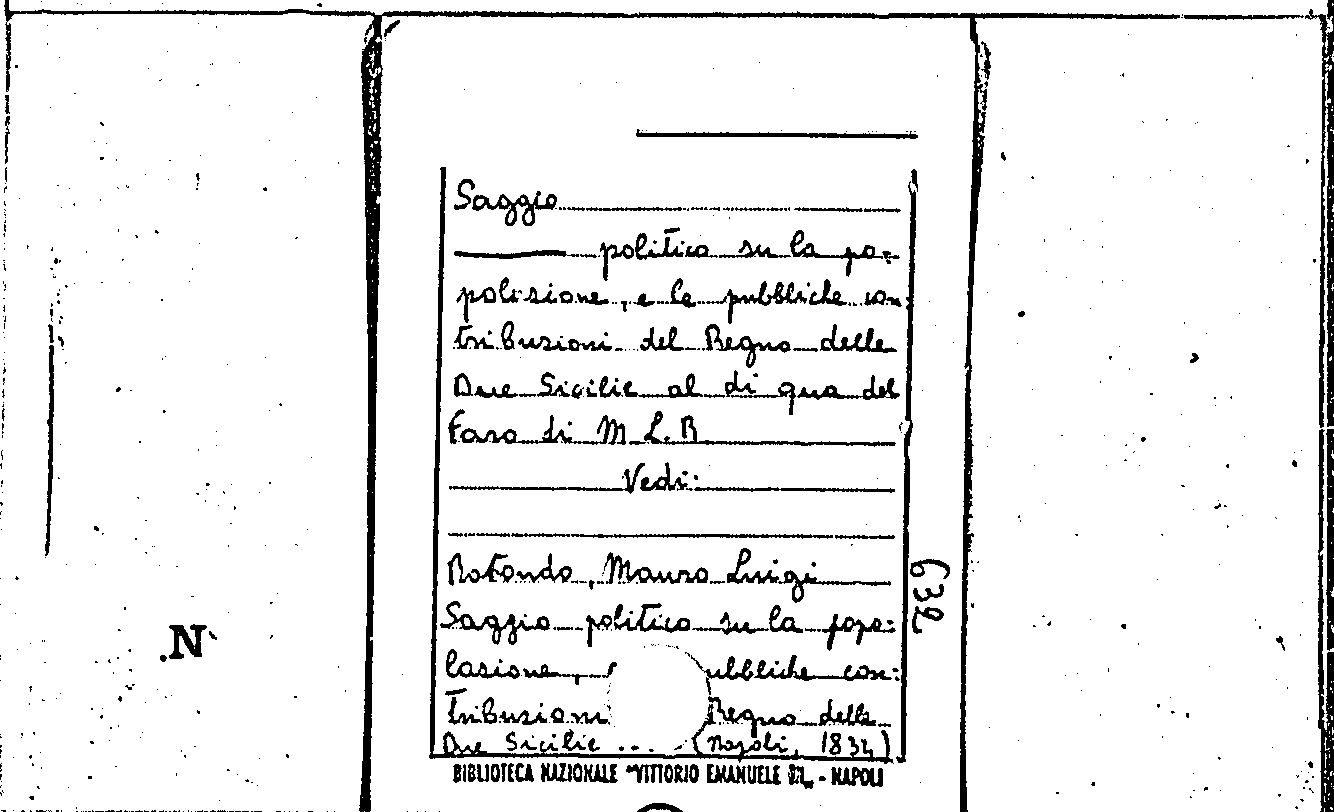 Saggio
politico su la po=
polazione, e le pubbliche con=
tribuzioni del Regno delle
Due Sicilie al di qua del
Faro di M L.R
Vedi:
Rotondo, Mauro Luigi
Saggio politico su la popo=
lazione, ubbliche con=
tribuzioni Regno delle
Due Sicilie ... (Napoli, 1834)
632
.N
BIBLIOTECA NAZIONALE "VITTORIO EMANUELE - NAPOLI